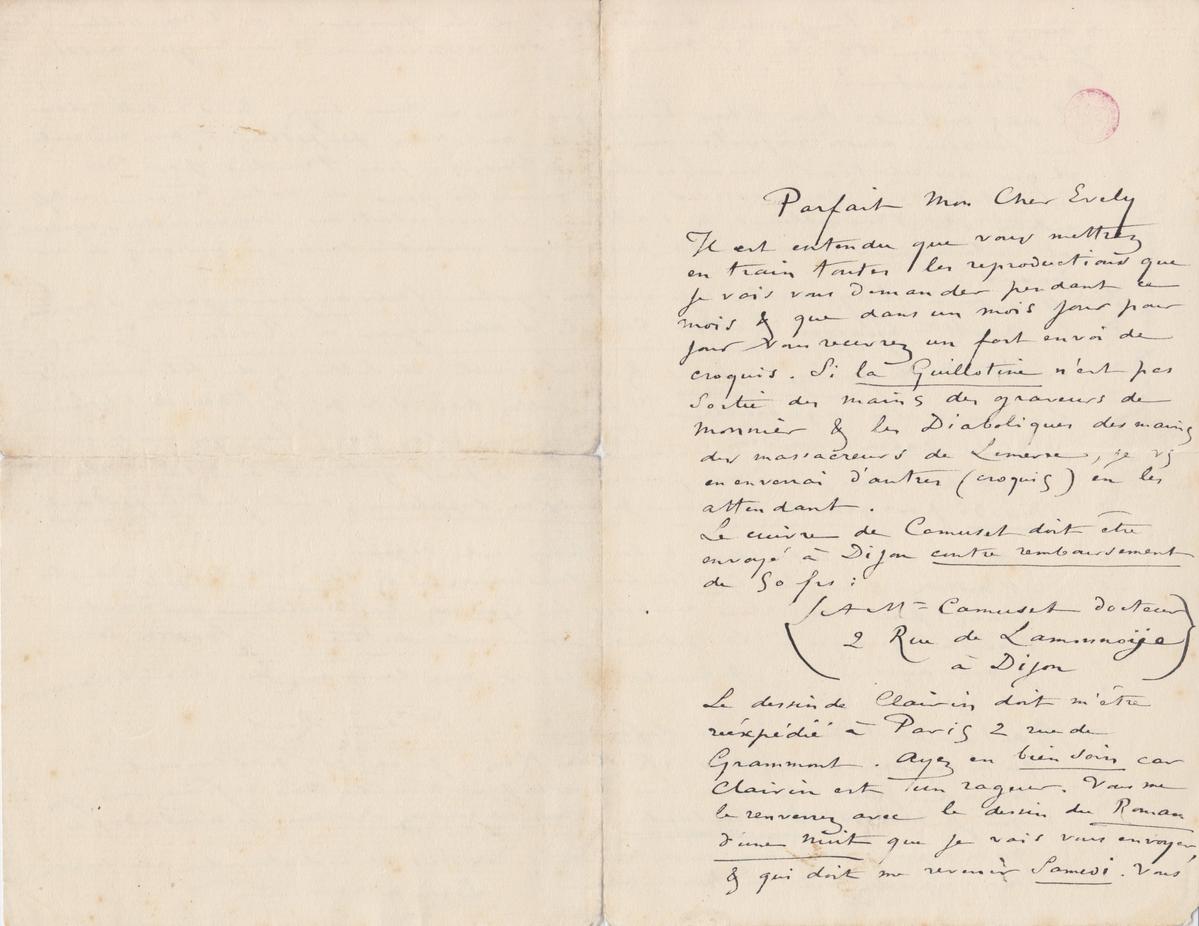 Parfait Mon Cher Evely
Il est entendu que vous mettrez
en train toutes les reproductions que
je vais vous demander pendant ce
mois & que dans un mois jour pour
jour vous recevrez un fort envoi de
croquis. Si la Guillotine n'est pas
sortie des mains des graveurs de
Monnier & les Diaboliques des mains
des massacreurs de Lemerre, je vs
en enverrai d'autres (croquis) en les
attendant.
Le cuivre de Camuset doit être
envoyé à Dijon contre remboursement
de 50 frs :
(A Mr Camuset docteur
2 Rue de Lammnoije
à Dijon)
Le dessin de Clairin doit m'être
réexpédié à Paris 2 rue de
Grammont. Ayez en bien soin car
Clairin est un rageur. Vous me
le renverrez avec le dessin du Roman
d'une nuit que je vais vous envoyer,
& qui doit me revenir Samedi. Vous